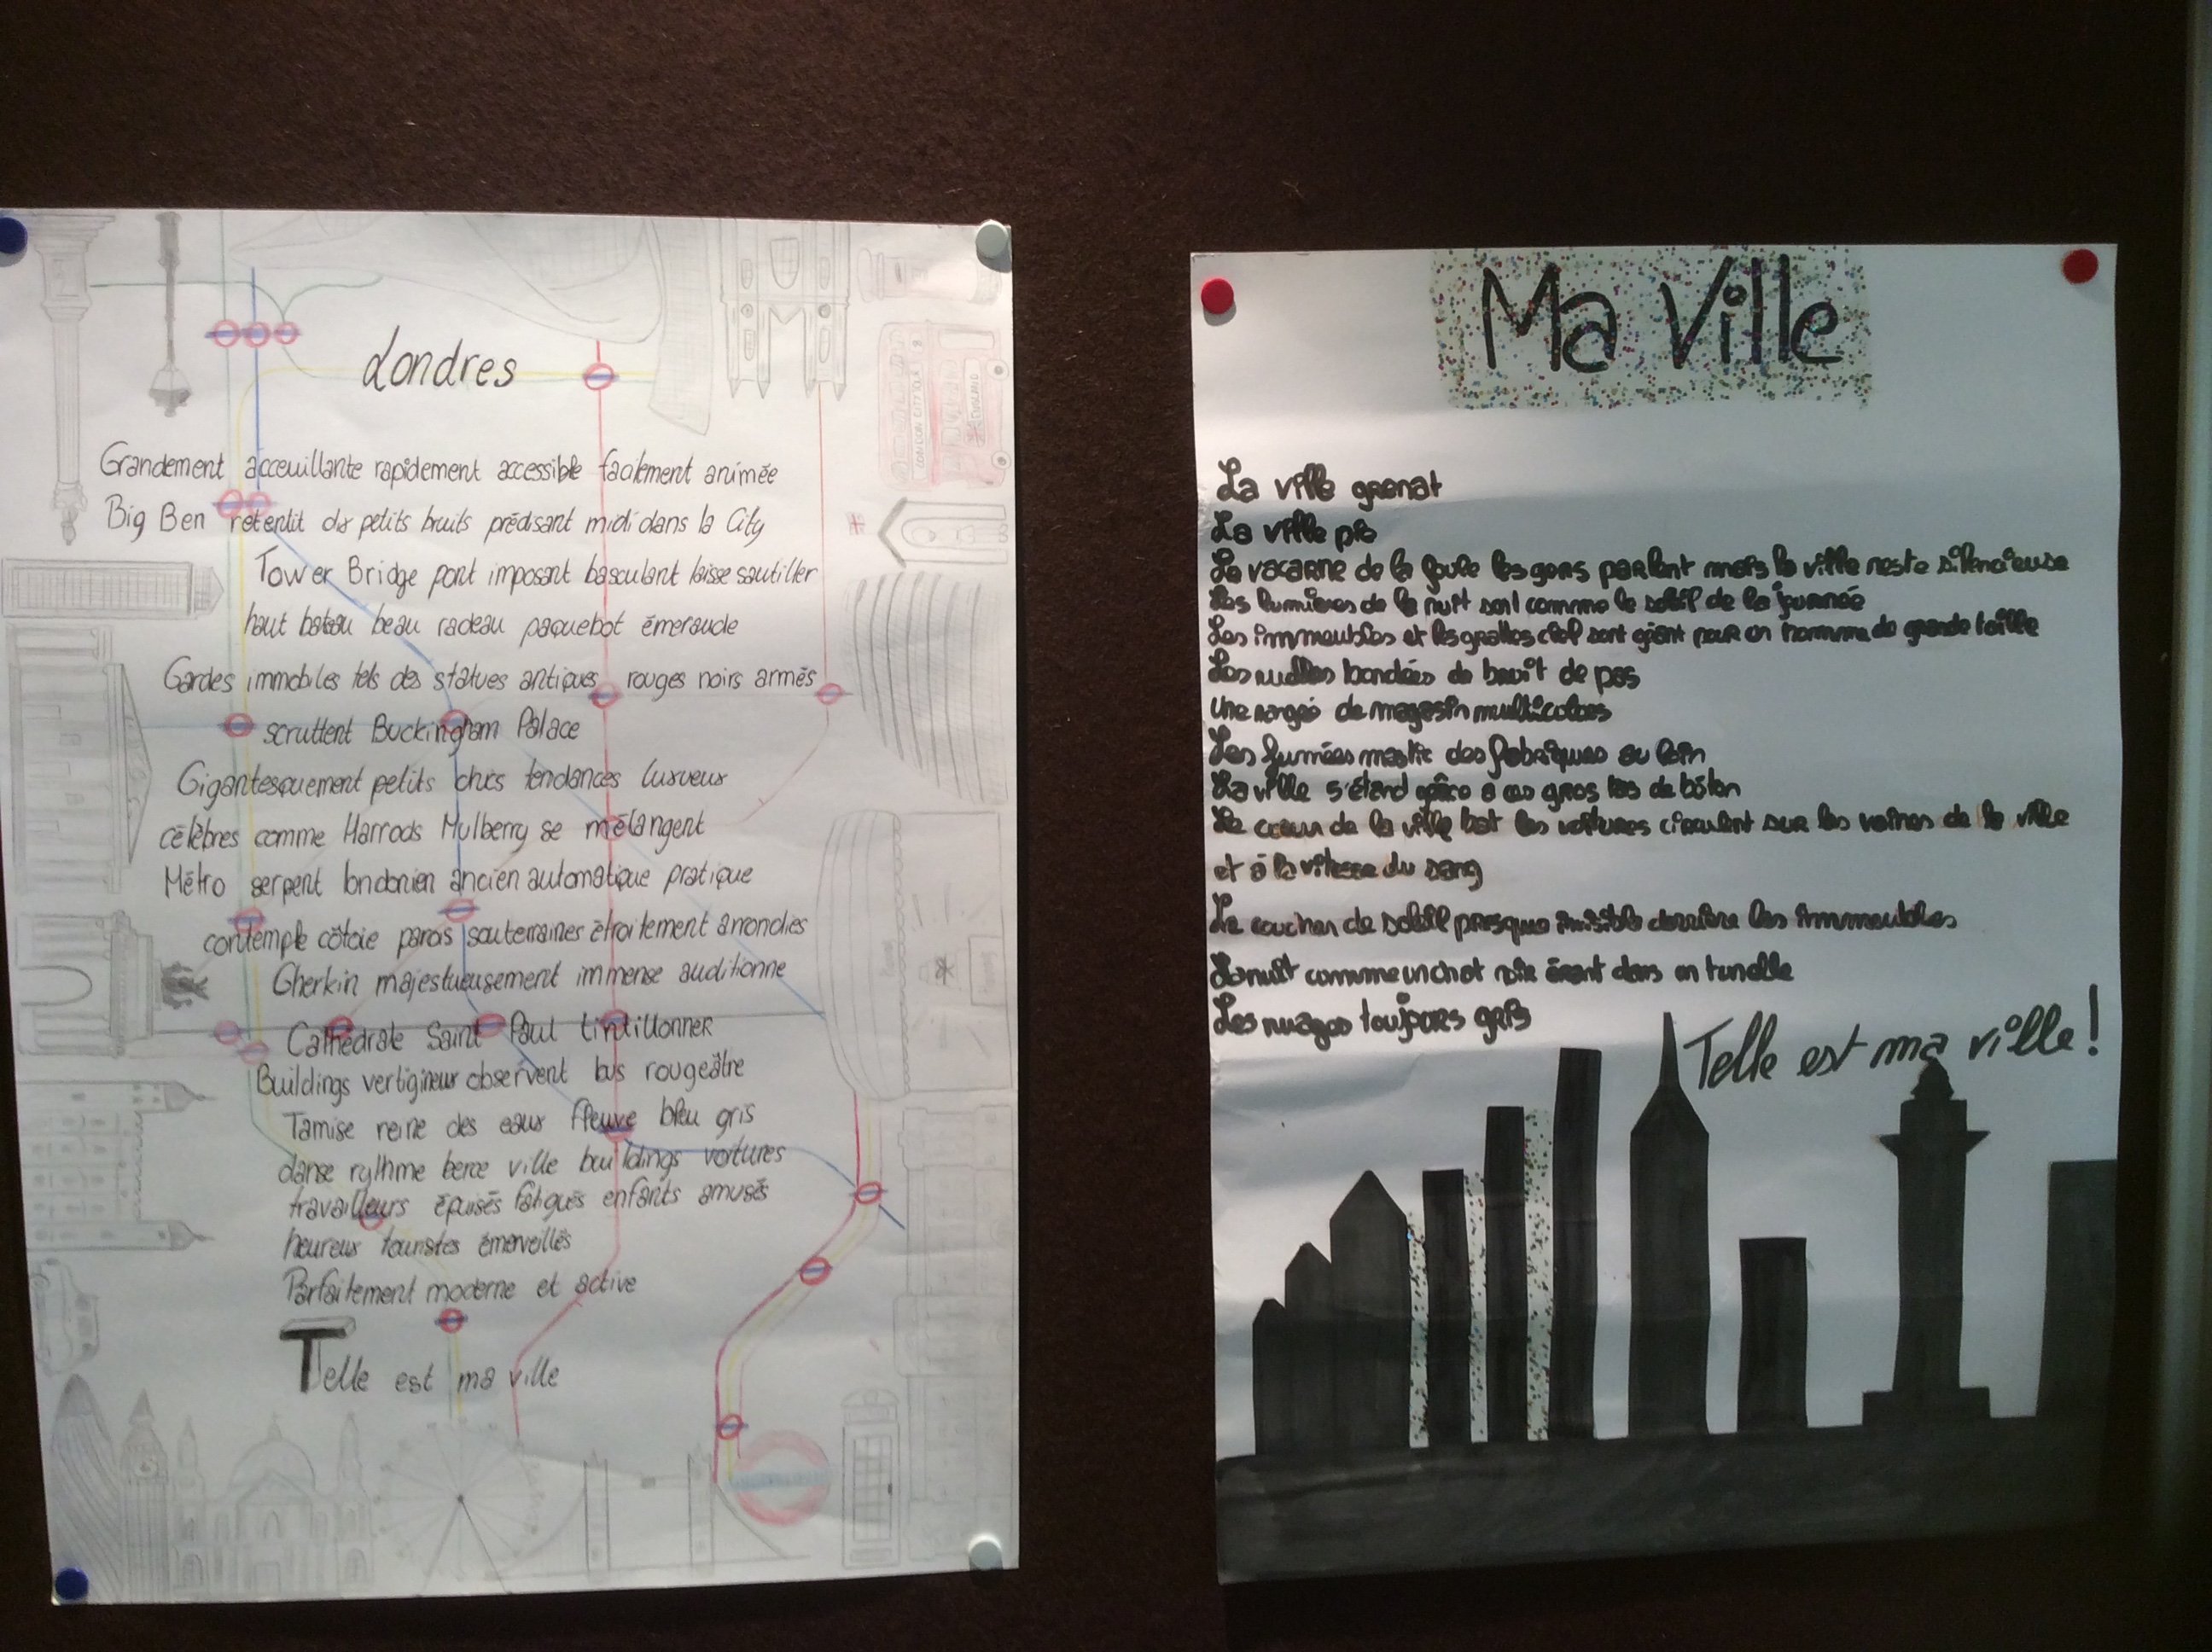 Londres
Grandement acceuillante rapidement accessible facilement animée
Big Ben retentit dix petits bruits prédisant midi dans la City
Tower Bridge pont imposant basculant laisse sautiller
haut bateau beau radeau paquebot émeraude
Gardes immobiles tels des statues antiques rouges noirs armés
scruttent Buckingham Palace
Gigantesquement petits chics tendances luxueux
célèbres comme Harrods Mulberry se mélangent
Métro serpent londonien ancien automatique pratique
contemple côtoie parois souterraines étroitement arrondies
Gherkin majestueusement immense auditionne
Cathédrale Saint Paul tintillonner
Buildings vertigineux observent bus rougeâtre
Tamise reine des eaux fleuve bleu gris
danse rythme berce ville buildings voitures
travailleurs épuisés fatigués enfants amusés
heureux touristes émerveillés
Parfaitement moderne et active
Telle est ma ville
Ma Ville
La ville grenat
La ville pis
Le vacarne de la foule les gens parlent mais la ville reste silencieuse
Les lumières de la nuit sont comme le soleil de la journée
Les immeubles et les grattes ciel sont géant pour un homme de grande taille
Les ruelles bondées de bruit de pas
Une rangée de magasin multicolores
Les fumées mastic des fabriques au loin
La ville s'étand grâce a ces gros tas de béton
Le coeur de la ville bat les voitures circulent sur les veines de la ville
et à la vitesse du sang
Le coucher de soleil presque invisible derrière les immeubles
La nuit comme un chat noir érant dans un tunelle
Les nuages toujours gris
Telle est ma ville !